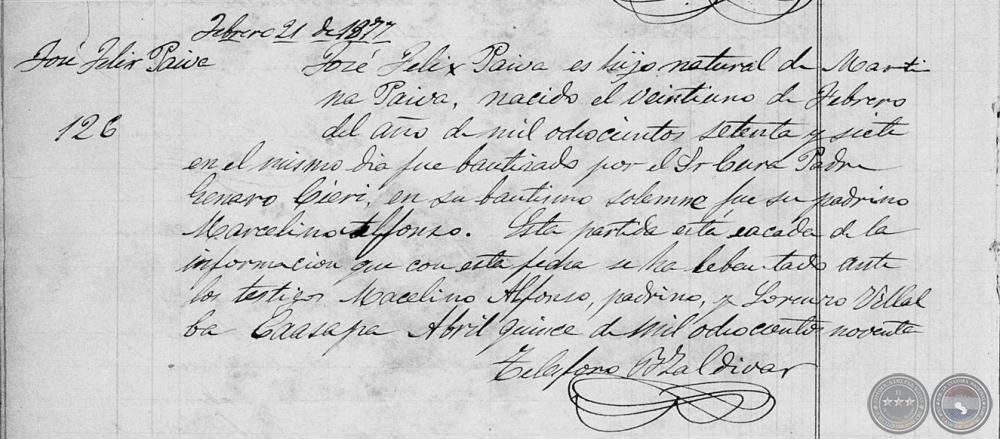 Febrero 21 de 1877
José Felix Paiva
José Felix Paiva es hijo natural de Marti
na Paiva, nacido el veintiuno de Febrero
126
del año de mil odiocientos setenta y siete
en el mismo dia fue bautizado por el Sr Cura Padre
Genaro Cieri, en su bautismo solemne fue su padrino
Marcelino Alfonso. Esta partida está sacada de la
informacion que con esta fecha se ha lebentado ante
los testigos Macelino Alfonso, padrino, y Lorenzo Villal
ba Caasapa Abril quince de mil odiocientos noventa
Telesforo Zaldivar